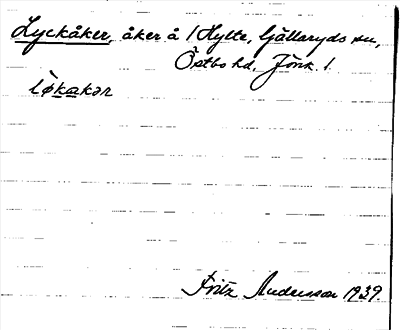 Lyckåker, åker å 1 Hylte, Gällaryds sn,
Östbo hd, Jönk. l.
lø̀kakər
Fritz Andersson 1939.